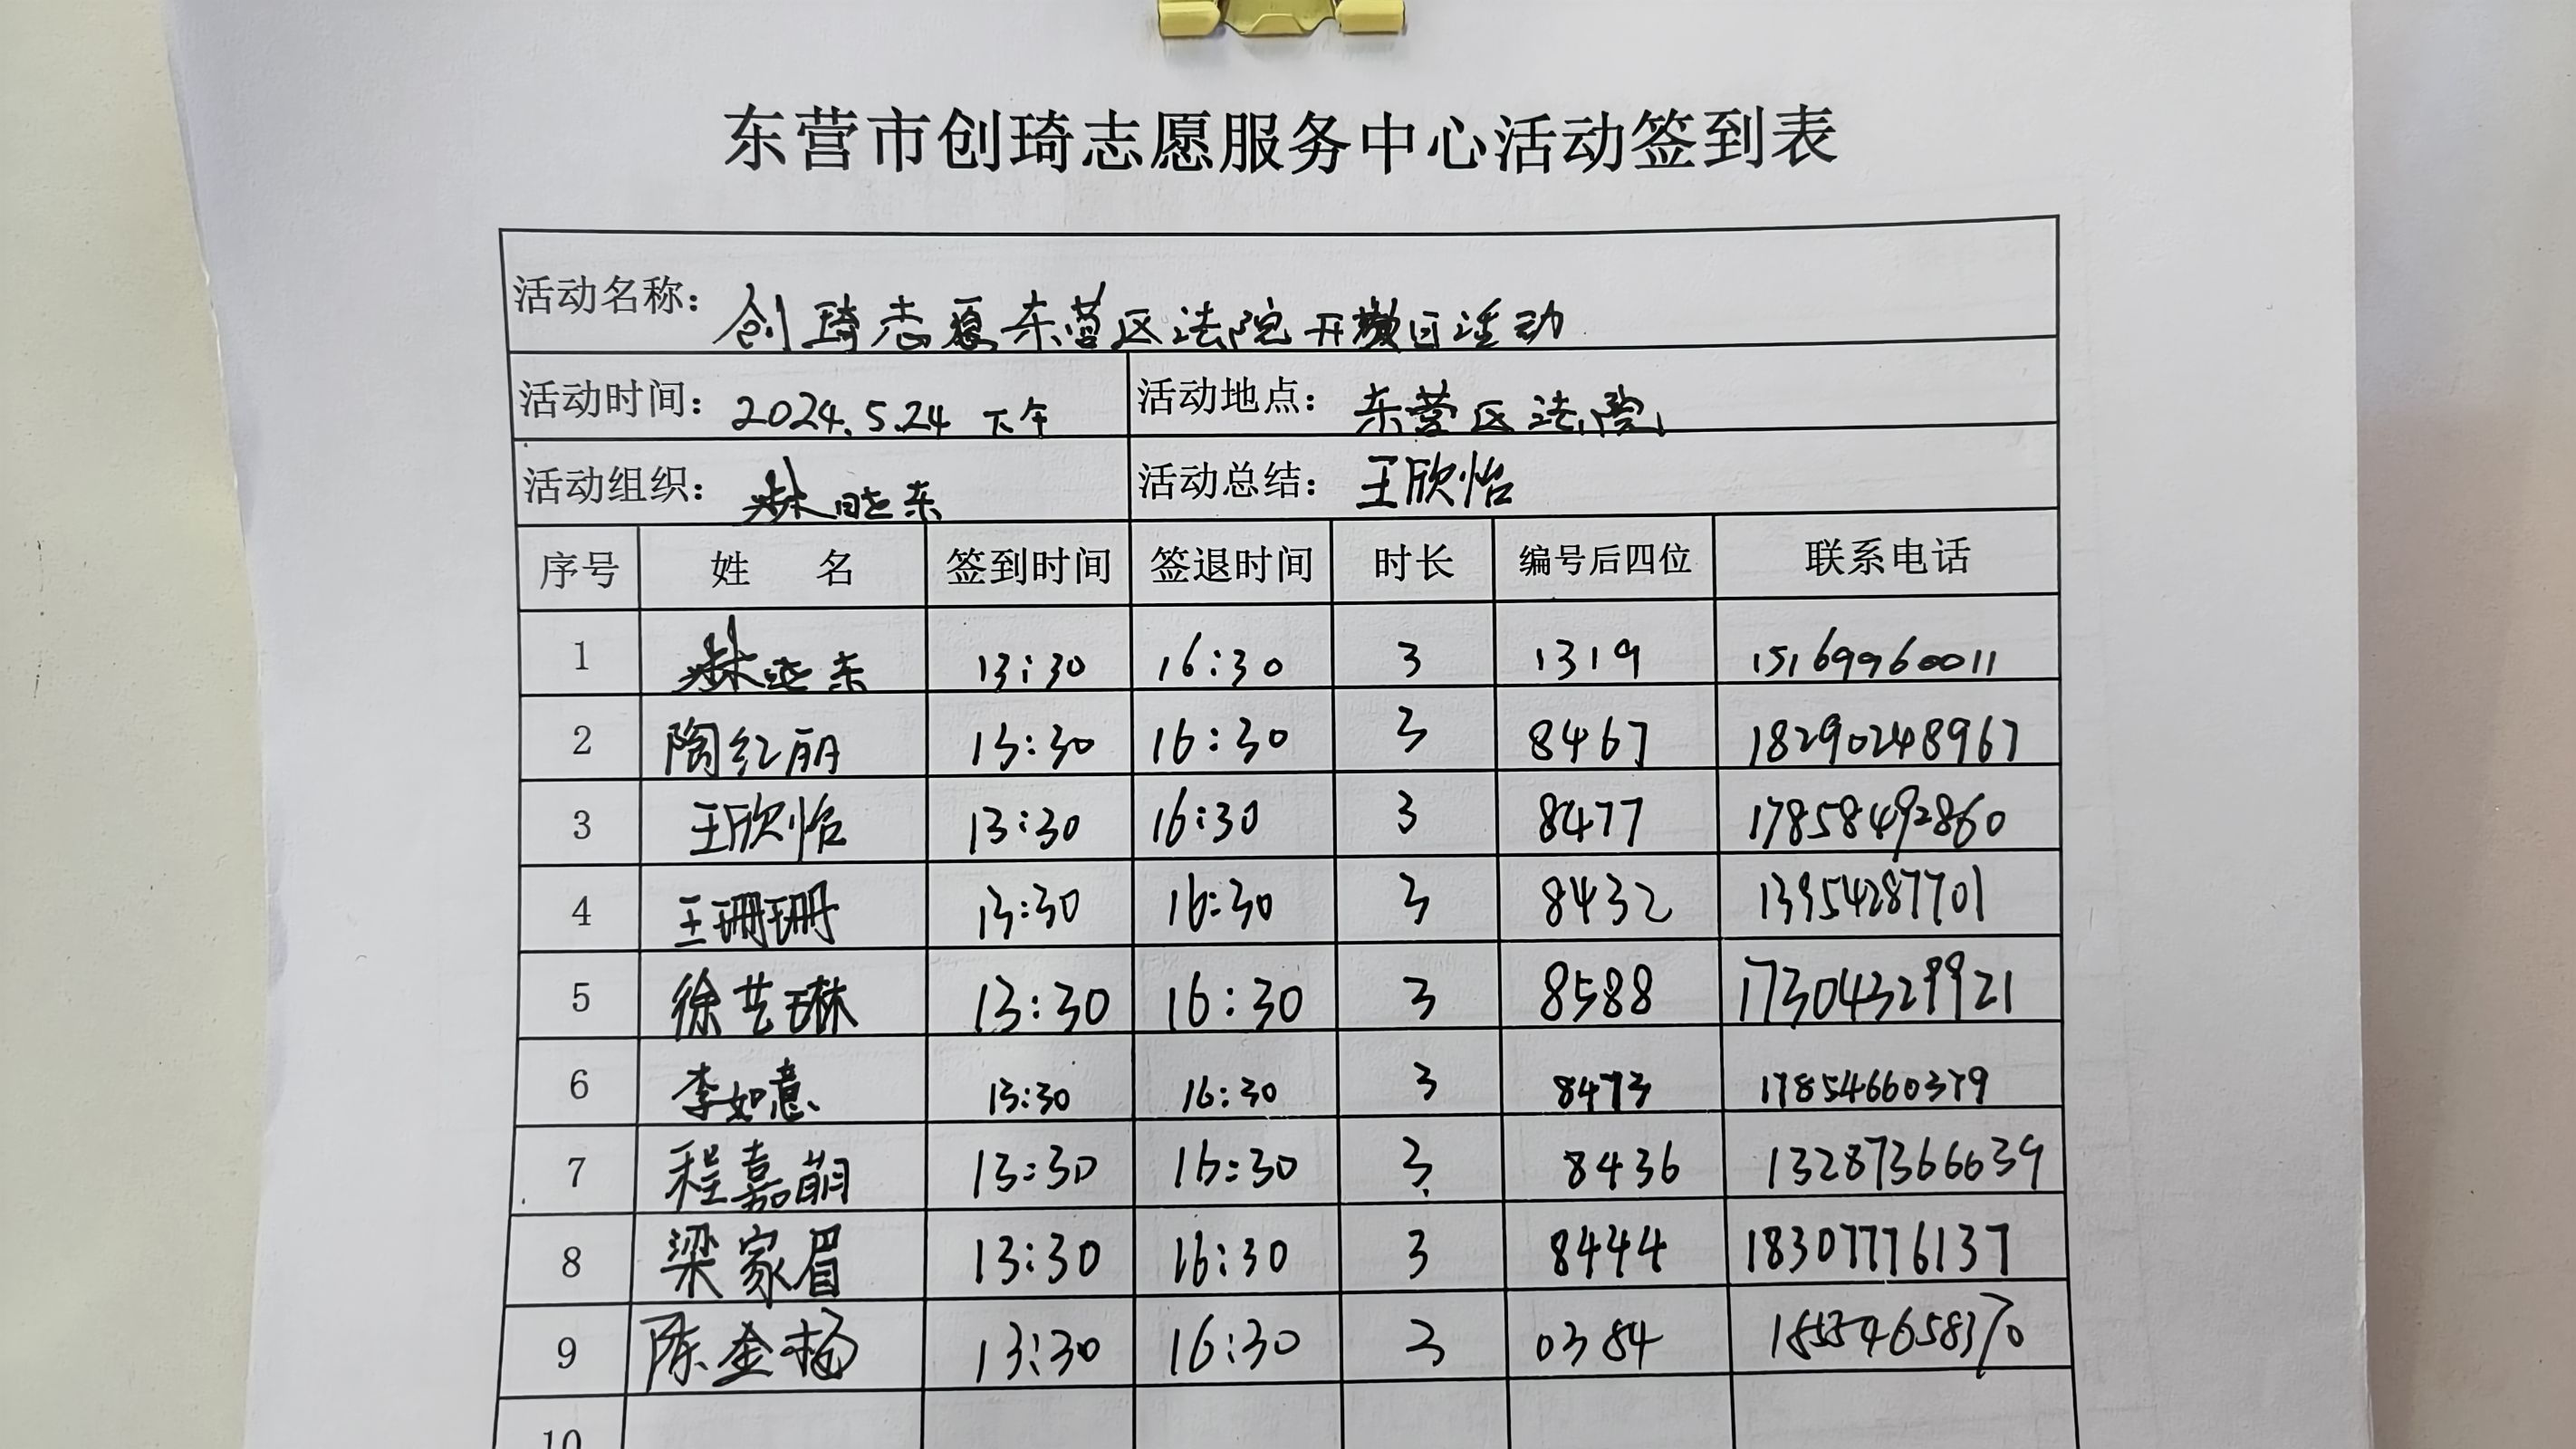 东营市创琦志愿服务中心活动签到表
活动名称： 创琦志愿东营区法院开放日活动
活动时间： 2024.5.24 下午 活动地点： 东营区法院
活动组织： 晓东 活动总结： 王欣怡
序号 姓 名 签到时间 签退时间 时长 编号后四位 联系电话
1 晓东 13:30 16:30 3 1319 15169960011
2 陶红丽 13:30 16:30 3 8467 18290248967
3 王欣怡 13:30 16:30 3 8477 17858492860
4 王珊珊 13:30 16:30 3 8432 13954287701
5 徐艺琳 13:30 16:30 3 8588 17304329921
6 李如意 13:30 16:30 3 8473 17854660379
7 程嘉萌 13:30 16:30 3 8436 13287366639
8 梁家眉 13:30 16:30 3 8444 18307776137
9 陈金杨 13:30 16:30 3 0384 18554658370
10